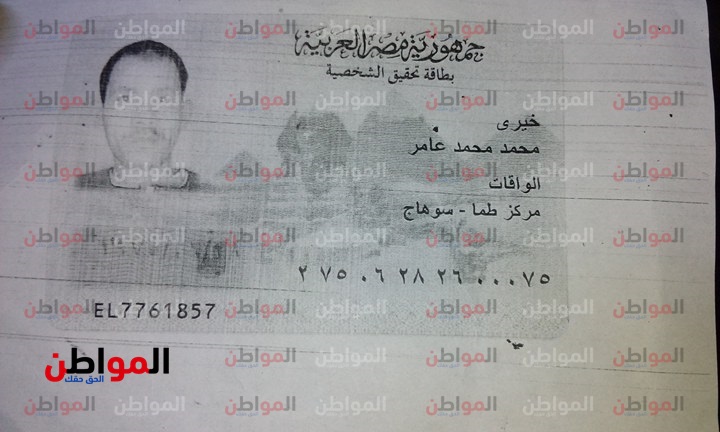 جمهورية مصر العربية
بطاقة تحقيق الشخصية
خيرى
محمد محمد عامر
الواقات
مركز طما - سوهاج
٢ ٧٥ ٠٦ ٢٨ ٢٦ ٠٠٠٧٥
EL7761857
المواطن
الحق حقك